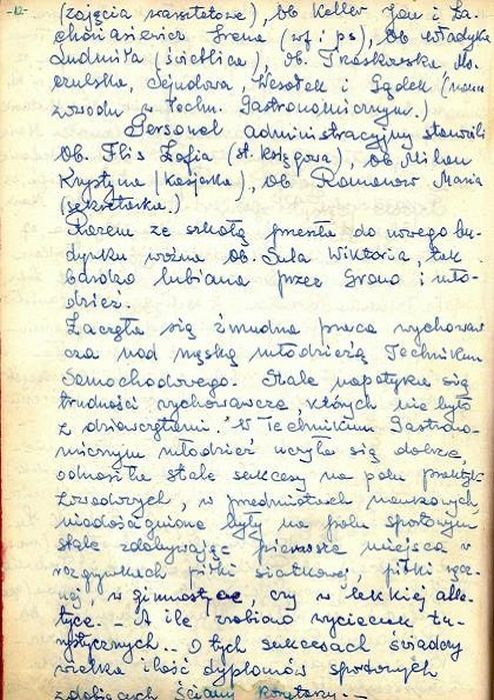 -12-
(zajęcia warsztatowe), ob Keller Jan i Za-
chariasiewicz Irena (wf i ps), ob Władyka
Ludmiła (świetlica), ob. Traskowska Mo-
czulska, Sejudowa, Wesołek i Gądek (nauka
zawodu w Techn. Gastronomicznym.)
Personel administracyjny stanowili
Ob. Flis Zofia (st. księgowa), ob Milan
Krystyna (Kasjerka), ob Romanow Maria
(sekretarka.)
Razem ze szkołą przeszła do nowego bu-
dynku woźna ob. Sala Wiktoria, tak
bardzo lubiana przez Grono i mło-
dzież.
Zaczęła się żmudna praca wychowaw
cza nad męską młodzieżą Technikum
Samochodowego. Stale napotyka się
trudności wychowawcze, których nie było
z dziewczętami. W Technikum Gastrono-
micznym młodzież uczyła się dobrze,
odnosiła stale sukcesy na polu praktyk
zawodowych, w przedmiotach naukowych,
niedoścignione były na polu sportowym
stale zdobywając pierwsze miejsca w
rozgrywkach piłki siatkowej, piłki ręcz-
nej, w gimnastyce, czy w lekkiej atle-
tyce. - A ile zrobiono wycieczek tu-
rystycznych.. O tych sukcesach świadczy
wielka ilość dyplomów sportowych
zdobiących ściany korytarzy. -